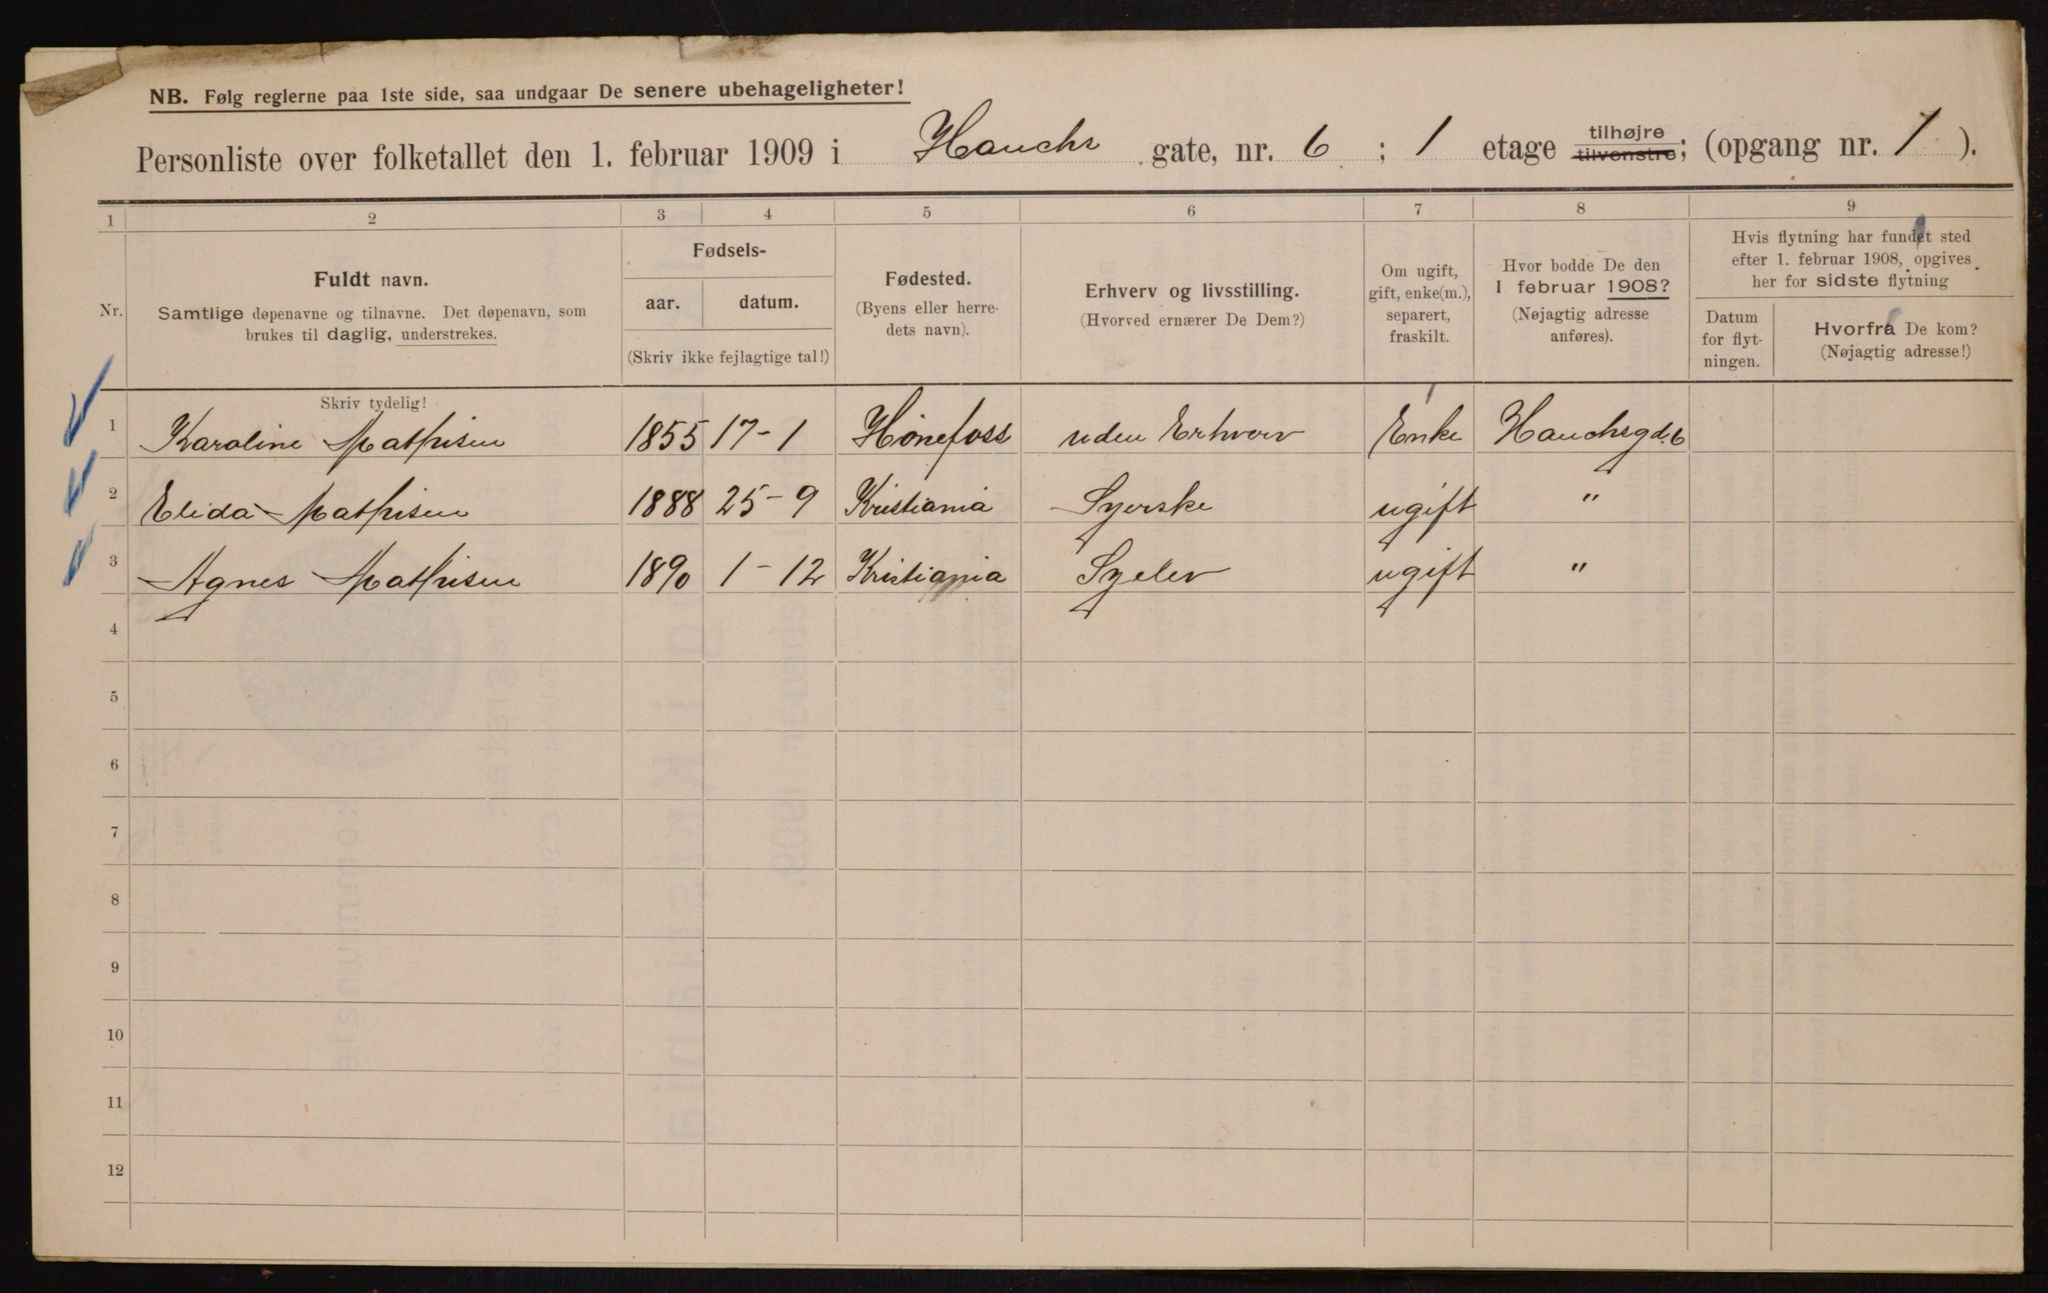 NB. Følg reglerne paa 1ste side, saa undgaar De senere ubehageligheter!
Personliste over folketallet den 1. februar 1909 i Hauchs gate, nr. 6 ; 1 etage tilhøjre tilvenstre; (opgang nr. 1 ).
1 2 3 4 5 6 7 8 9
Nr.
Fuldt navn.
Samtlige døpenavne og tilnavne. Det døpenavn, som
brukes til daglig, understrekes.
Fødsels-
aar. datum.
(Skriv ikke fejlagtige tal!)
Fødested.
(Byens eller herre-
dets navn).
Erhverv og livsstilling.
(Hvorved ernærer De Dem?)
Om ugift,
gift, enke(m.),
separert,
fraskilt.
Hvor bodde De den
1 februar 1908?
(Nøjagtig adresse
anføres).
Hvis flytning har fundet sted
efter 1. februar 1908, opgives
her for sidste flytning
Datum
for flyt-
ningen.
Hvorfra De kom?
(Nøjagtig adresse!)
Skriv tydelig!
1 Karoline Mathisen 1855 17-1 Hønefoss uden Erhverv Enke Hauchsgd. 6
2 Elida Mathisen 1888 25-9 Kristiania Syerske ugift "
3 Agnes Mathisen 1890 1-12 Kristiania Syelev ugift "
4
5
6
7
8
9
10
11
12